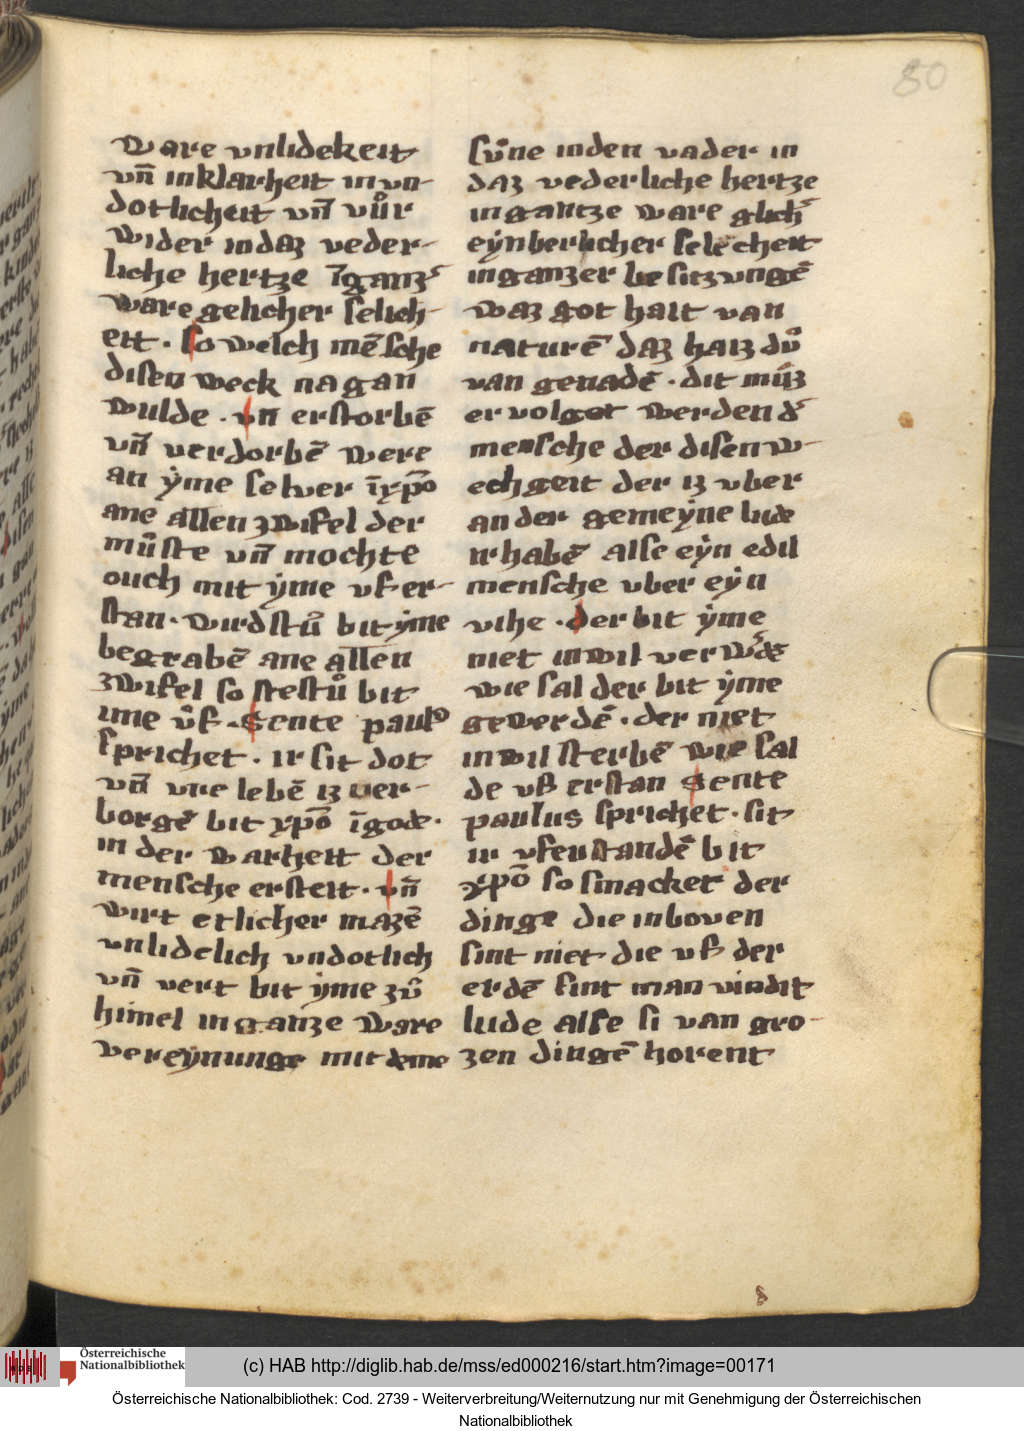 80
ware vnlidekeit
vn̄ inklarheit in vn-
dotlicheit vn̄ vůr
wider indaz veder-
liche hertze īganzͤ
ware gelicher selich-
eit · so welch mēsche
disen weck nagan
wulde · vn̄ erstorbē
vn̄ verdorbē were
an ẏme selver īxp̄o
ane allen zwifel der
můste vn̄ mochte
ouch mit ẏme vf er-
stan · wirdstů bit ẏme
begrabē ane allen
zwifel so stestů bit
ime ůf · Sente paulꝯ
sprichet · ir sit dot
vn̄ vre lebē iz ver-
borgē bit xp̄o īgode ·
in der warheit der
mensche ersteit · vn̄
wirt etlicher mazē
vnlidelich vndotlich
vn̄ vert bit ẏme zů
himel inganze ware
vereẏnunge mit deme
sůne inden vader in
daz vederliche hertze
ingantze ware glichͤ
eẏnberlicher selēcheit
inganzer besitzvngē
waz got hait van
naturē daz haiz dů
van genadē · dit můz
ervolget werden dͤ
mensche der disen w-
ech geit der iz vber
ander gemeẏne lude
irhabē alse eẏn edil
mensche vber eẏn
vihe · der bit ẏme
niet inwil verwͤde
wie sal der bit ẏme
gewerdē · der niet
inwil sterbē wie sal
de vf erstan Sente
paulus sprichet · sit
ir vferstandē bit
xp̄o so smacket der
dinge die inboven
sint niet die vf der
erdē sint man vindit
lude alse si van gro-
zen dingē horent
Österreichische
Nationalbibliothek
(c) HAB http://diglib.hab.de/mss/ed000216/start.htm?image=00171
Österreichische Nationalbibliothek: Cod. 2739 - Weiterverbreitung/Weiternutzung nur mit Genehmigung der Österreichischen
Nationalbibliothek